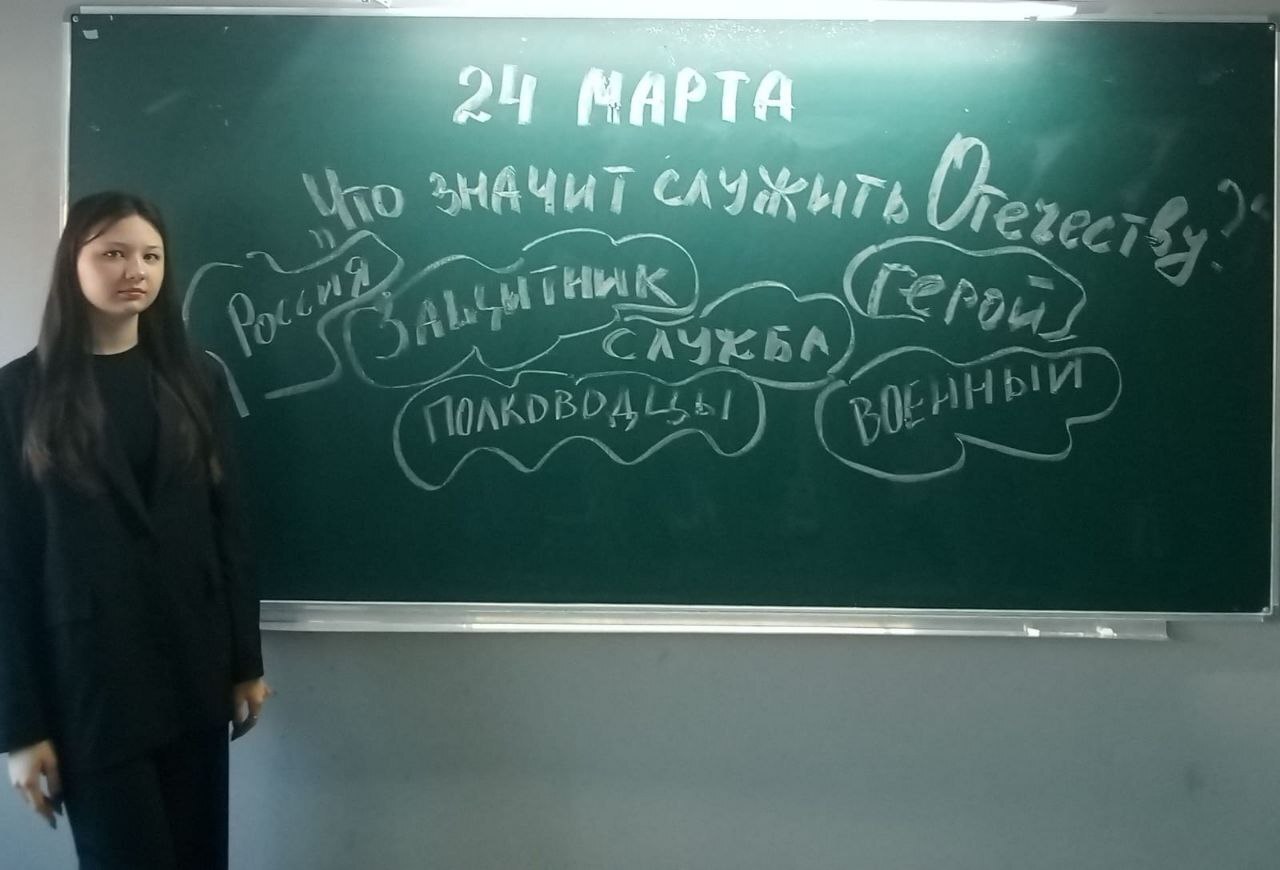 24 МАРТА
„Что значит служить Отечеству?“
Россия
Защитник
Герой
служба
полководцы
военный